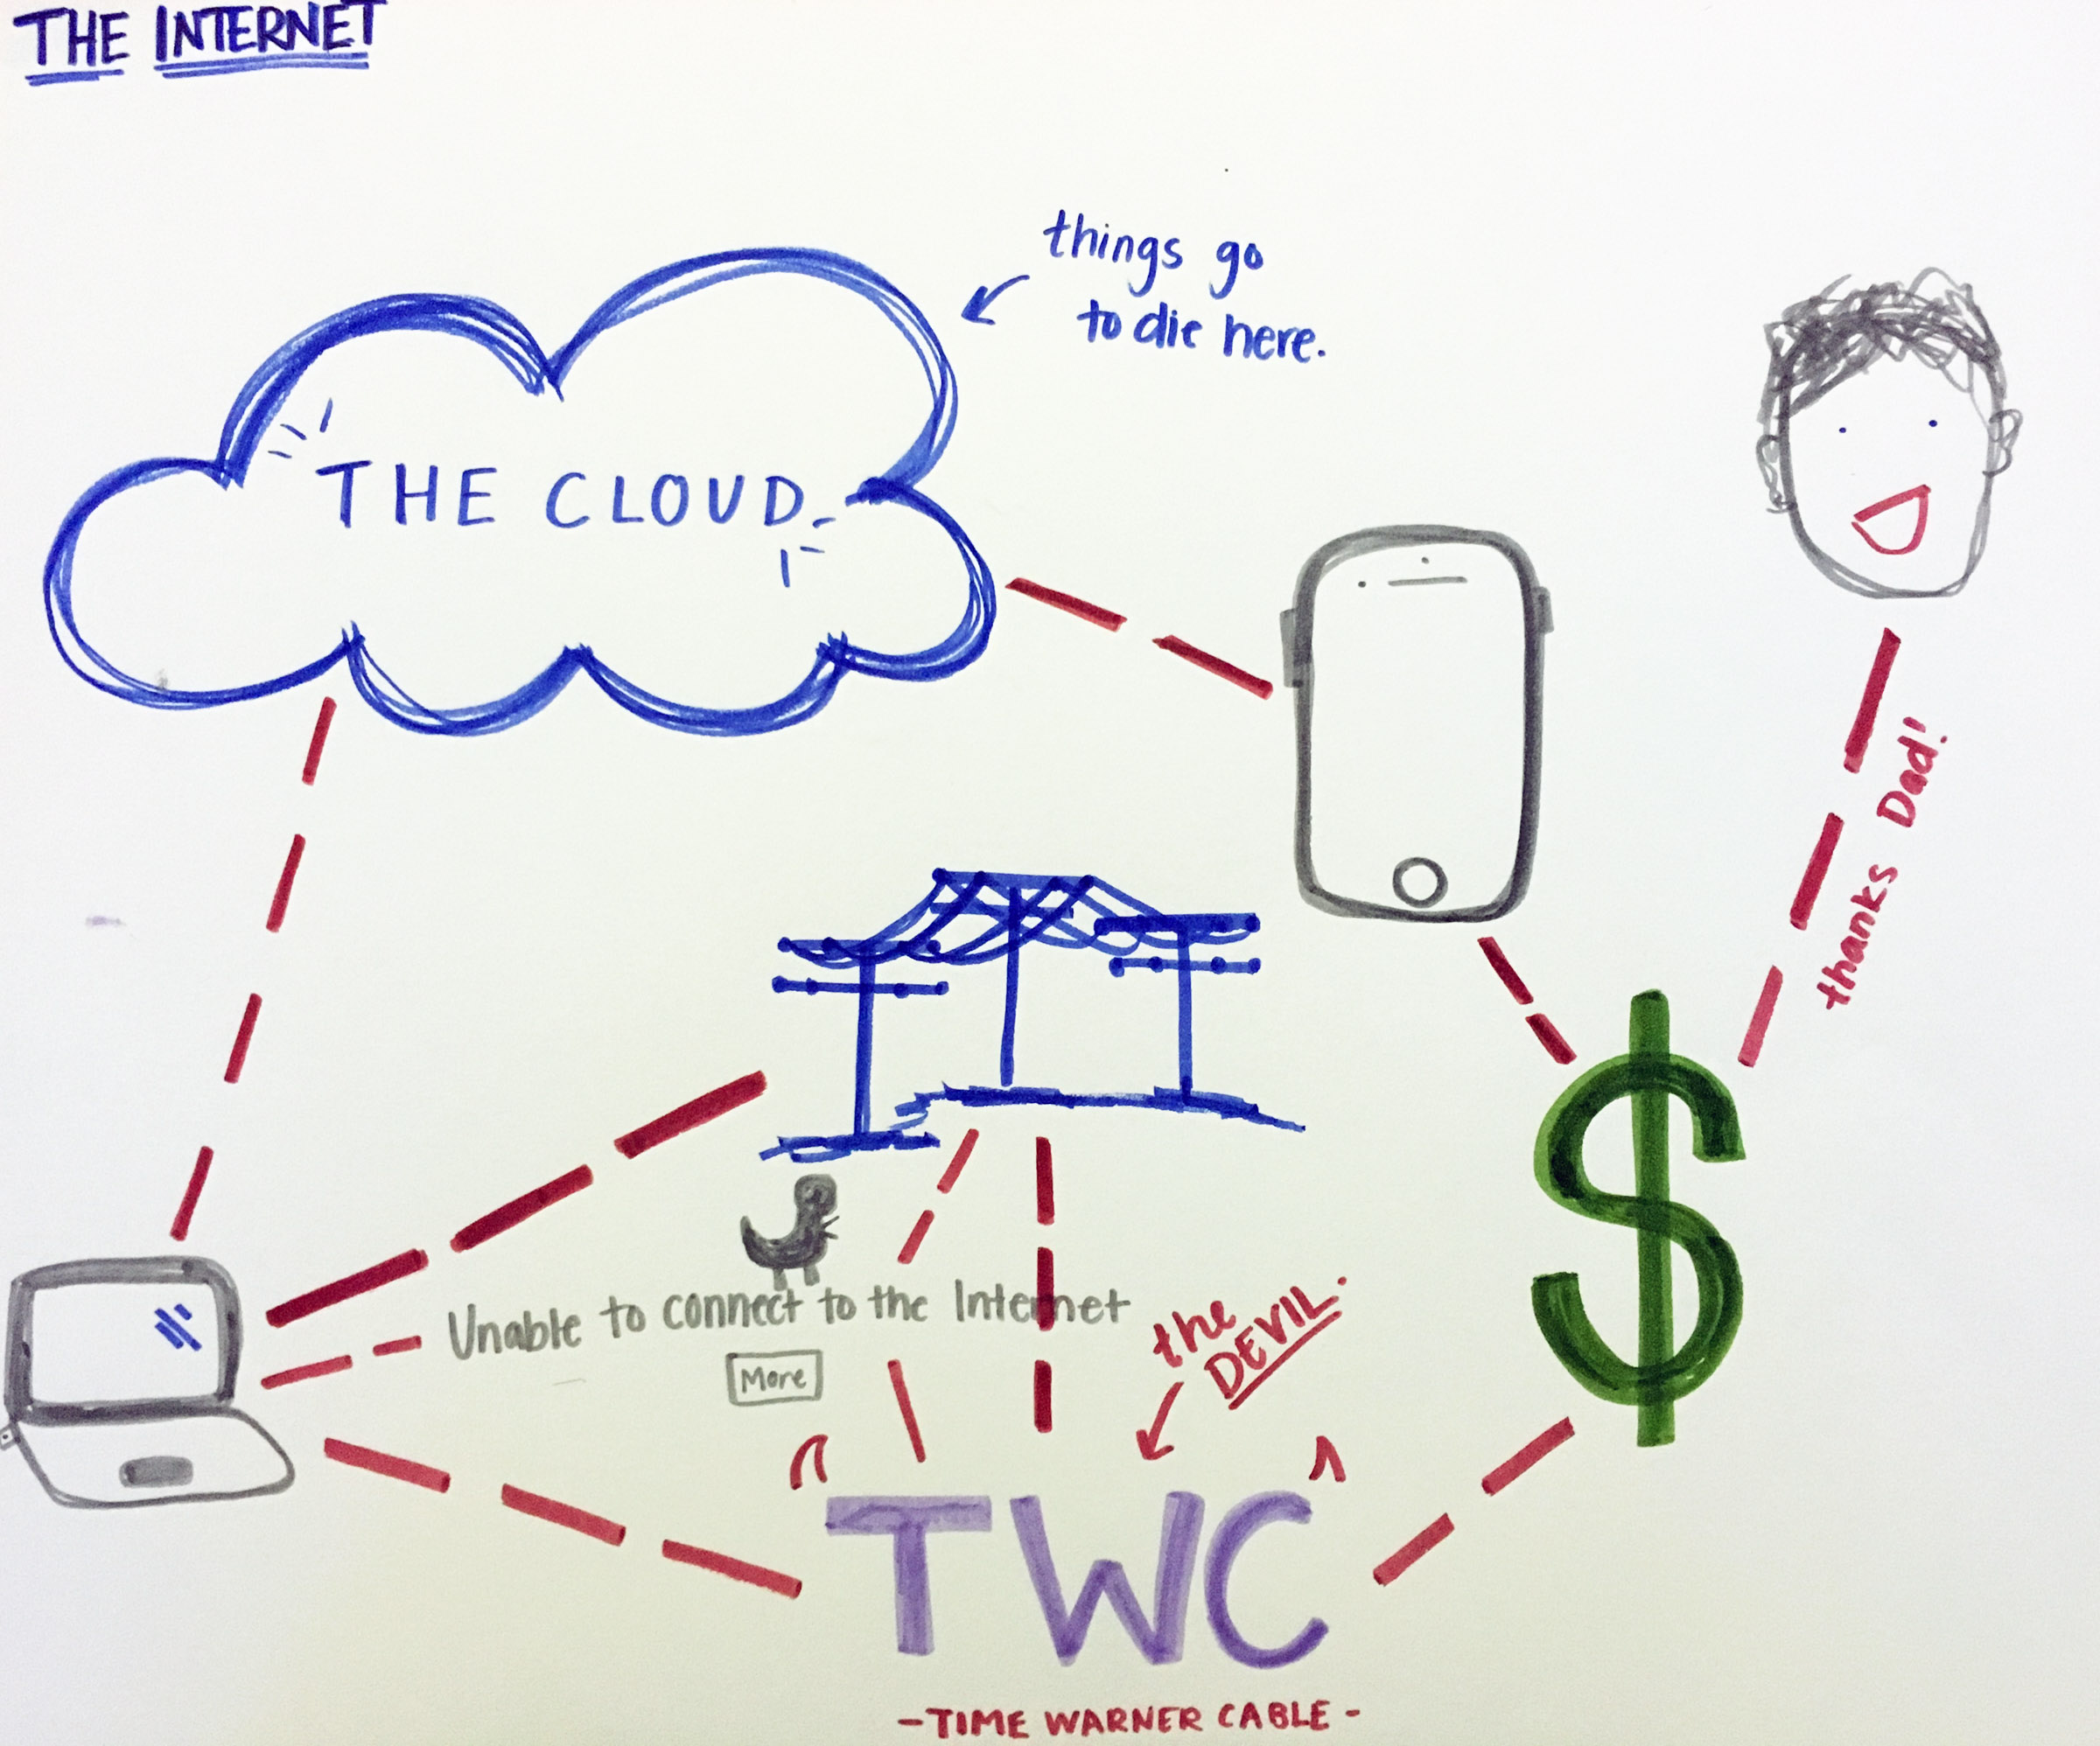 THE INTERNET
things go
to die here.
THE CLOUD
thanks Dad!
$
Unable to connect to the Internet
More
the
DEVIL.
TWC
-TIME WARNER CABLE-